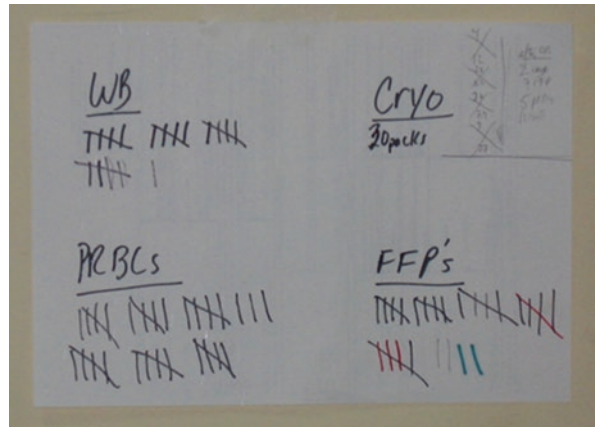 WB
Cryo
30packs
PRBCs
FFP's